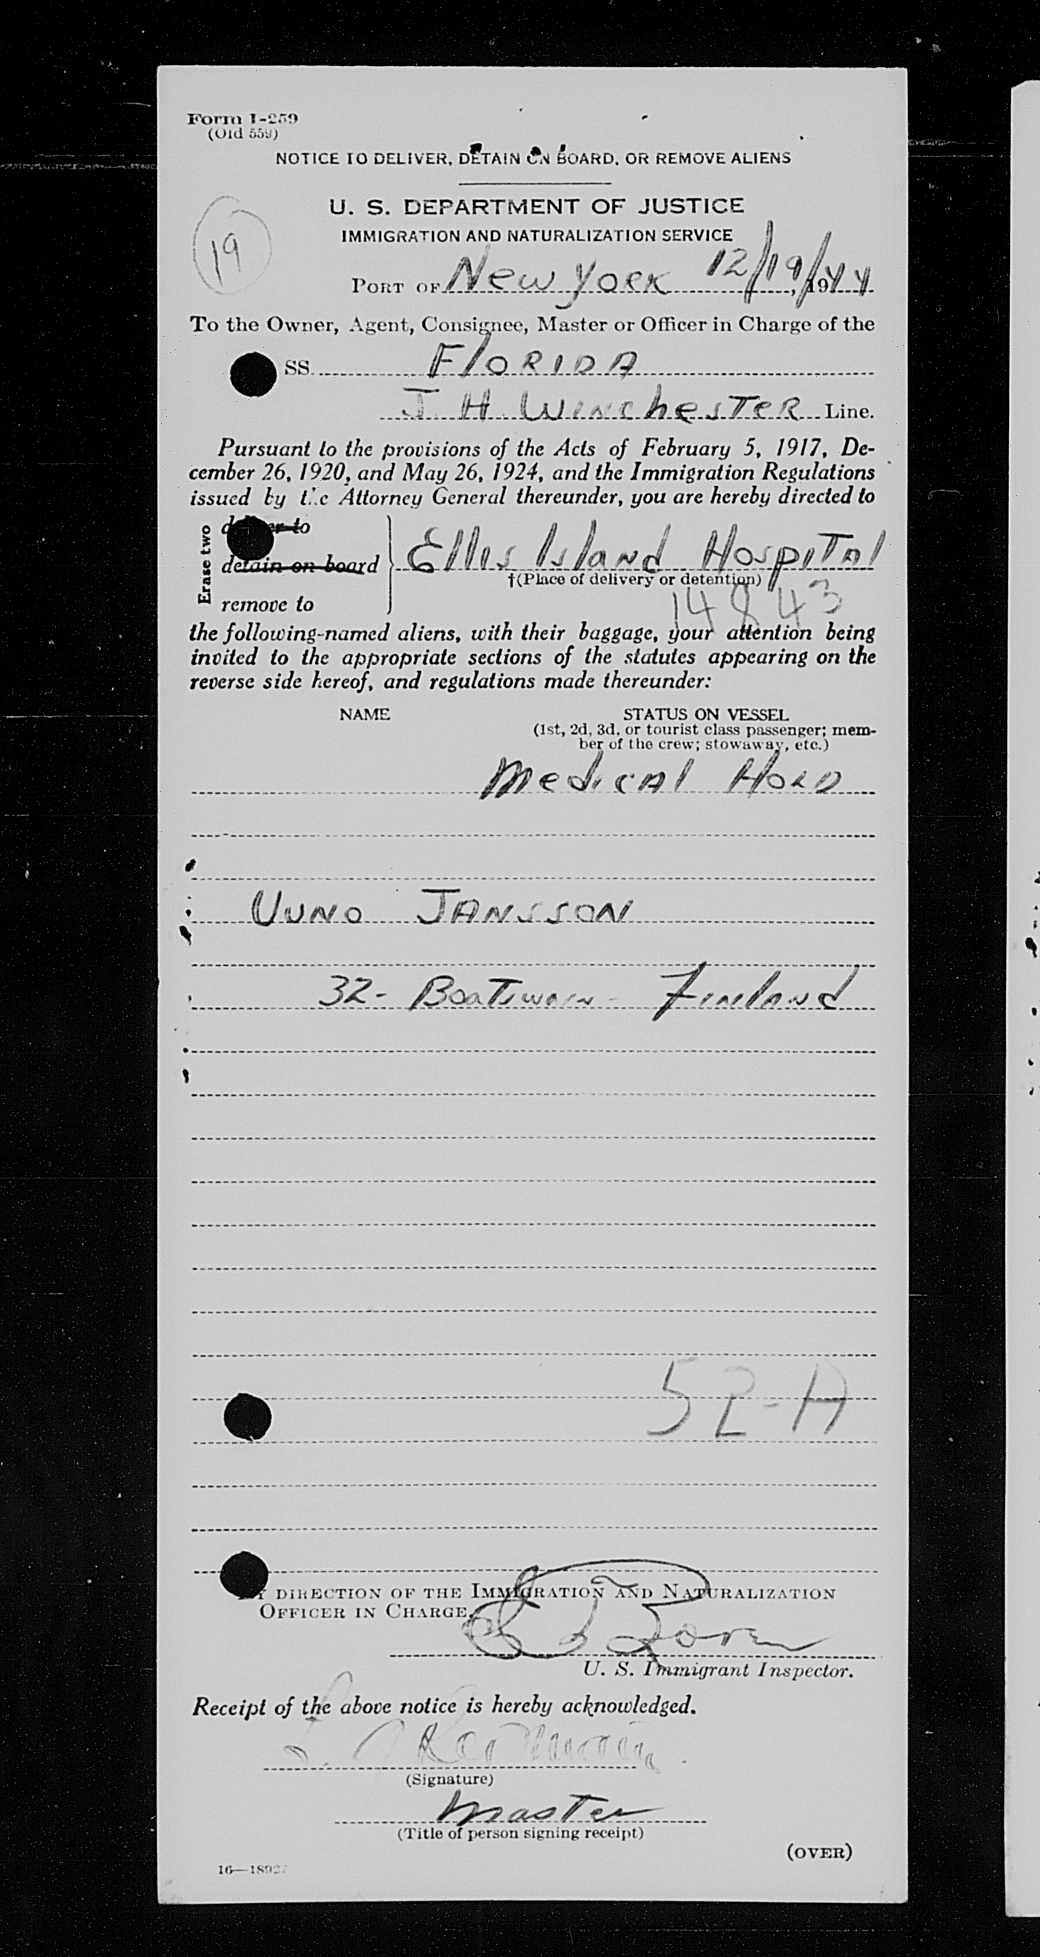 Form I-259
(Old 559)
NOTICE TO DELIVER, DETAIN ON BOARD, OR REMOVE ALIENS
U. S. DEPARTMENT OF JUSTICE
IMMIGRATION AND NATURALIZATION SERVICE
19
PORT OF New York 12/19/, 1944
To the Owner, Agent, Consignee, Master or Officer in Charge of the
SS. FLORIDA
J. H. Winchester Line.
Pursuant to the provisions of the Acts of February 5, 1917, De-
cember 26, 1920, and May 26, 1924, and the Immigration Regulations
issued by the Attorney General thereunder, you are hereby directed to
Erase two
deliver to
detain on board
remove to
Ellis Island Hospital
†(Place of delivery or detention)
14843
the following-named aliens, with their baggage, your attention being
invited to the appropriate sections of the statutes appearing on the
reverse side hereof, and regulations made thereunder:
NAME STATUS ON VESSEL
(1st, 2d, 3d, or tourist class passenger; mem-
ber of the crew; stowaway, etc.)
Medical Hold
Uuno Jansson
32- Boatswain- Finland
52-A
BY DIRECTION OF THE IMMIGRATION AND NATURALIZATION
OFFICER IN CHARGE.
U. S. Immigrant Inspector.
Receipt of the above notice is hereby acknowledged.
(Signature)
Master
(Title of person signing receipt)
(OVER)
16—18927